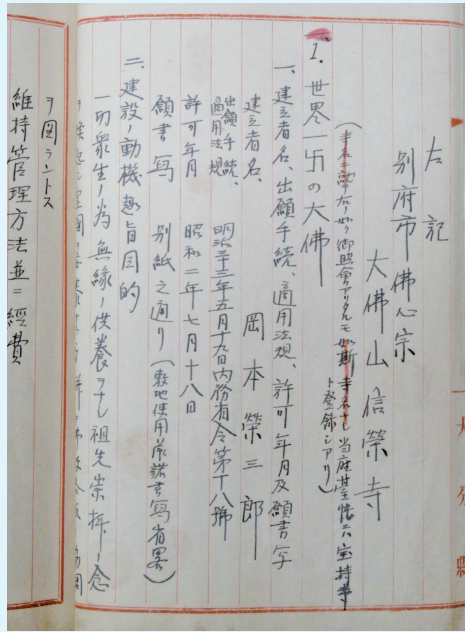 左記
別府市佛心宗
大佛山信榮寺
ト登錄シアリ)
1. 世界一卍の大佛
一、建立者名、出願手続、適用法規、許可年月及願書写
建立者名、 岡本榮三郎
出願手続、
適用法規 明治三十三年五月十九日内務省令第十八號
許可年月 昭和二年七月十八日
願書写 別紙之通り(敷地使用承諾書写省略)
二、建設ノ動機趣旨目的
一切衆生ノ為無縁ノ供養ヲナシ祖先崇拝ノ念
ヲ図ラントス
維持管理方法並ニ經費
大分縣